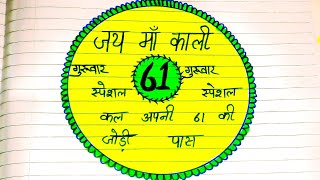 जय माँ काली
गुरूवार 61 गुरूवार
स्पेशल स्पेशल
कल अपनी 61 की
जोड़ी पास